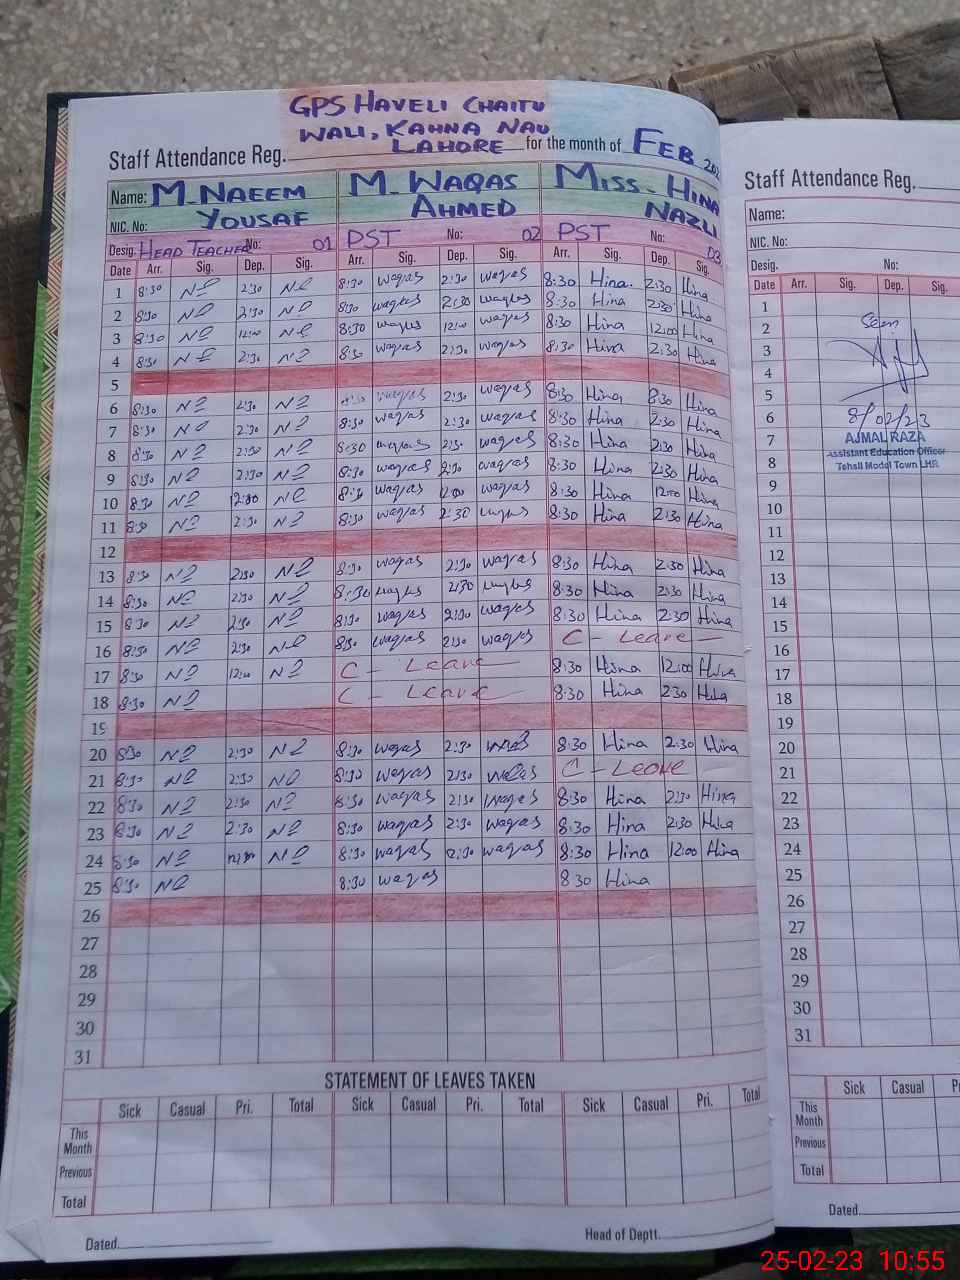 GPS HAVELI CHAITU
WALI, KAHNA NAU
LAHORE
Staff Attendance Reg. for the month of FEB
Name: M. NAEEM YOUSAF M. WAQAS AHMED MISS. HINA NAZLI
NIC. No:
Desig. HEAD TEACHER No: 01 PST No: 02 PST No: 03
Date Arr. Sig. Dep. Sig. Arr. Sig. Dep. Sig. Arr. Sig. Dep. Sig.
1 8:30 2:30 8:30 waqas 2:30 waqas 8:30 Hina. 2:30 Hina
2 8:30 2:30 8:30 waqas 2:30 waqas 8:30 Hina 2:30 Hina
3 8:30 12:00 8:30 waqas 12:00 waqas 8:30 Hina 12:00 Hina
4 8:30 2:30 8:30 waqas 2:30 waqas 8:30 Hina 2:30 Hina
5
6 8:30 2:30 waqas 2:30 waqas 8:30 Hina 8:30 Hina
7 8:30 2:30 8:30 waqas 2:30 waqas 8:30 Hina 2:30 Hina
8 8:30 2:30 8:30 waqas 2:30 waqas 8:30 Hina 2:30 Hina
9 8:30 2:30 8:30 waqas 2:30 waqas 8:30 Hina 2:30 Hina
10 8:30 12:00 8:30 waqas 12:00 waqas 8:30 Hina 12:00 Hina
11 8:30 2:30 8:30 waqas 2:30 8:30 Hina 2:30 Hina
12
13 8:30 2:30 8:30 waqas 2:30 waqas 8:30 Hina 2:30 Hina
14 8:30 2:30 8:30 2:30 8:30 Hina 2:30 Hina
15 8:30 2:30 8:30 waqas 2:30 waqas 8:30 Hina 2:30 Hina
16 8:30 2:30 8:30 waqas 2:30 waqas C - Leave -
17 8:30 12:00 C - Leave 8:30 Hina 12:00 Hina
18 8:30 C - Leave 8:30 Hina 2:30 Hina
19
20 8:30 2:30 8:30 waqas 2:30 8:30 Hina 2:30 Hina
21 8:30 2:30 8:30 waqas 2:30 waqas C - Leave
22 8:30 2:30 8:30 waqas 2:30 waqas 8:30 Hina 2:30 Hina
23 8:30 2:30 8:30 waqas 2:30 waqas 8:30 Hina 2:30 Hina
24 8:30 8:30 waqas waqas 8:30 Hina 12:00 Hina
25 8:30 8:30 waqas 8 30 Hina
26
27
28
29
30
31
STATEMENT OF LEAVES TAKEN
Sick Casual Pri. Total Sick Casual Pri. Total Sick Casual Pri. Total
This Month
Previous
Total
Dated. Head of Deptt.
Staff Attendance Reg.
Name:
NIC. No:
Desig. No:
Date Arr. Sig. Dep. Sig.
1
2
Seen
3
4
5
6
8/02/23
7
AJMAL RAZA
Assistant Education Officer
8
Tehsil Model Town LHR
9
10
11
12
13
14
15
16
17
18
19
20
21
22
23
24
25
26
27
28
29
30
31
Sick Casual
This Month
Previous
Total
Dated.
25-02-23 10:55